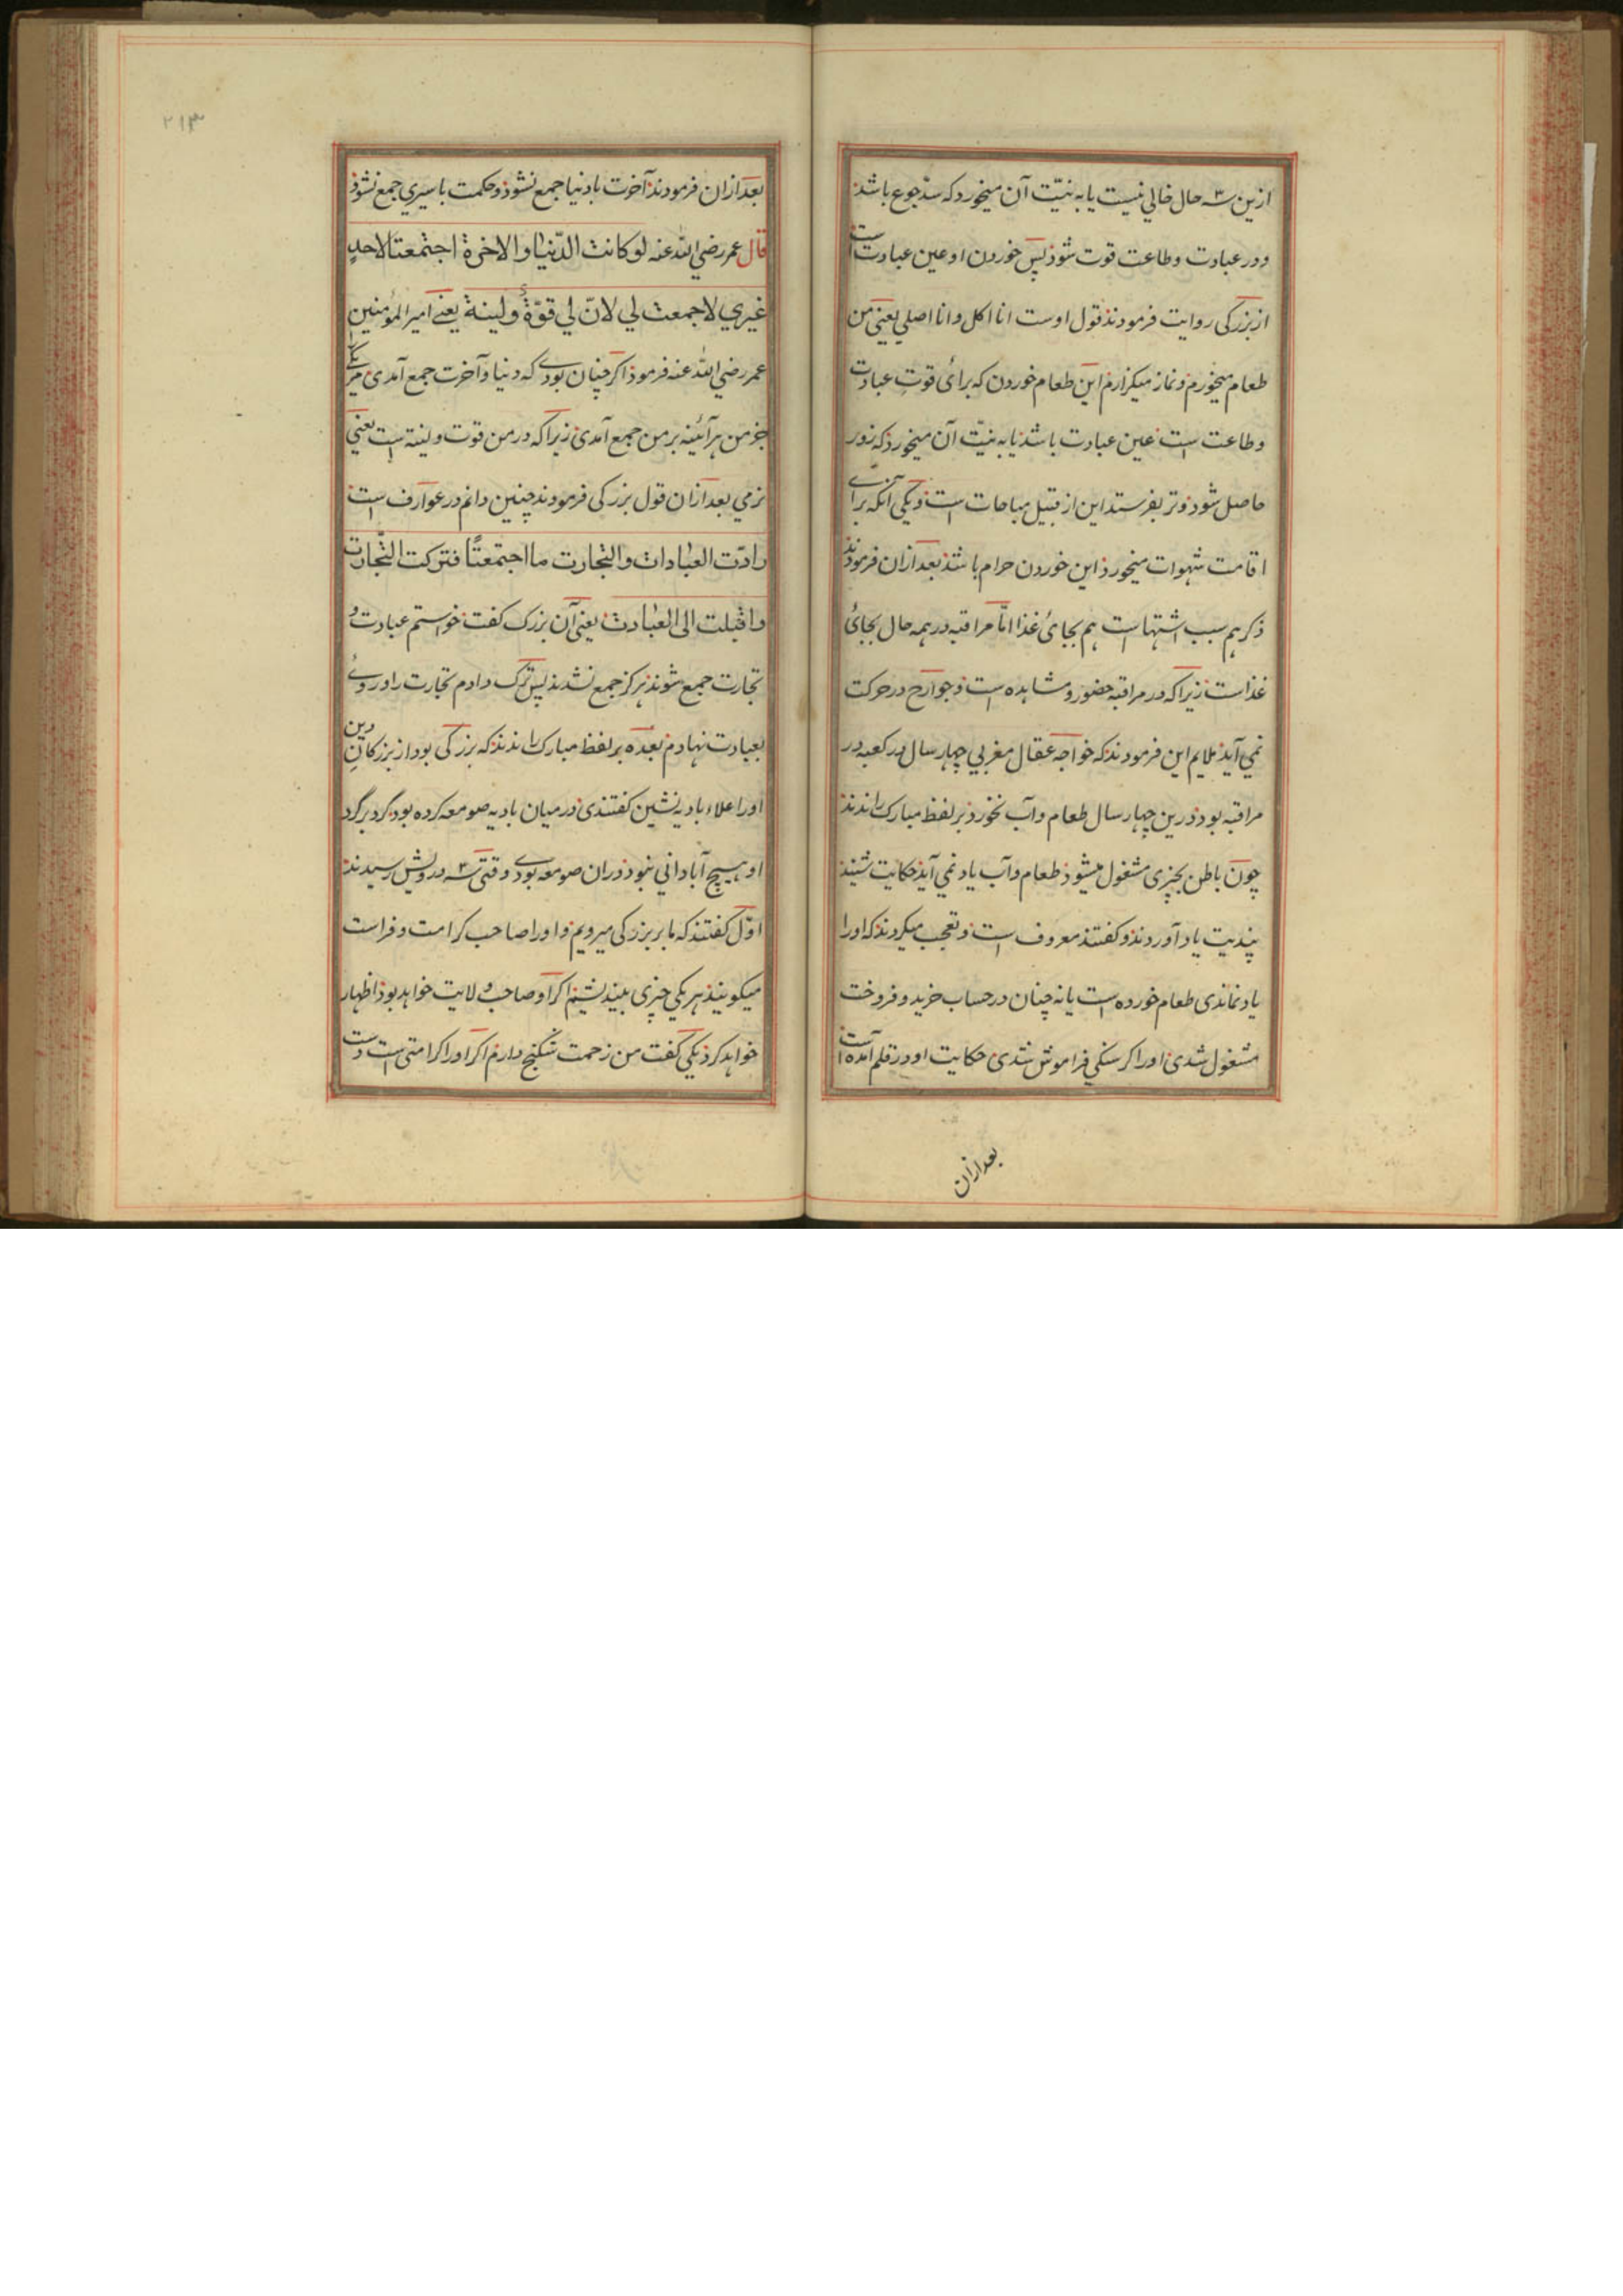 ازین سه حال خالي نیست یا به نیّت آن میخورد که سدّ جوع باشد
و در عبادت و طاعت قوت شود پس خوردن او عین عبادت است
از بزرکی روایت فرمودند قول اوست انا اکل وانا اصلي یعني من
طعام میخورم و نماز میکزارم این طعام خوردن که برائ قوت عبادت
و طاعت است عین عبادت باشد یا به نیّت آن میخورد که زور
حاصل شود و تر بفرستد این از قبیل مباحات است و یکی آنکه براے
اقامت شهوات میخورد این خوردن حرام باشد بعد ازان فرمودند
ذکر هم سبب اشتهاست هم بجائ غذا امّا مراقبه در همه حال بجائ
غذاست زیرا که در مراقبه حضور و مشاهده است و جوارح در حرکت
نمي آید ملایم این فرمودند که خواجه عقال مغربي چهار سال در کعبه در
مراقبه بود درین چهار سال طعام و آب نخورد بر لفظ مبارک راندند
چون باطن بچیزی مشغول میشود طعام و آب یاد نمي آید حکایت شنید
پندیت یاد آوردند و کفتند معروف است و تعجب میکردند که او را
یاد نماندی طعام خورده است یا نه چنان در حساب خرید و فروخت
مشغول شدی او را کرسنکي فراموش شدی حکایت او در قلم آمده است
بعد ازان
۲۱۳
بعد ازان فرمودند آخرت با دنیا جمع نشود و حکمت با سیري جمع نشود
قال عمر رضي الله عنه لو کانت الدّنیا والاخرة اجتمعتا لاحدٍ
غیري لاجمعت لي لانّ لي قوّةً ولینة یعنے امیر المؤمنین
عمر رضي الله عنه فرمود اکر چنان بودے که دنیا و آخرت جمع آمدی مر یکے
جز من هر آئینه بر من جمع آمدی زیرا که در من قوت و لینة است یعني
نرمي بعد ازان قول بزرکی فرمودند چنین دانم در عوارف است
رادّت العبادات والتجارت ما اجتمعتًا فترکت التّجارت
واقبلت الی العبادت یعني آن بزرک کفت خواستم عبادت و
تجارت جمع شوند هرکز جمع نشدند پس ترک دادم تجارت را و روئے
بعبادت نهادم بعده بر لفظ مبارک راندند که بزرکی بود از بزرکان دین
او را علاء بادیه نشین کفتندی در میان بادیه صومعه کرده بود کرد بر کرد
او هیچ آباداني نبود دران صومعه بودے وقتی سه درویش رسیدند
اوّل کفتند که ما بر بزرکی میرویم و او را صاحب کرامت و فراست
میکویند هر یکي چیزی بیندیشیم اکر او صاحب ولایت خواهد بود اظهار
خواهد کرد یکي کفت من زحمت شکنج دارم اکر او را کرامتی است دست